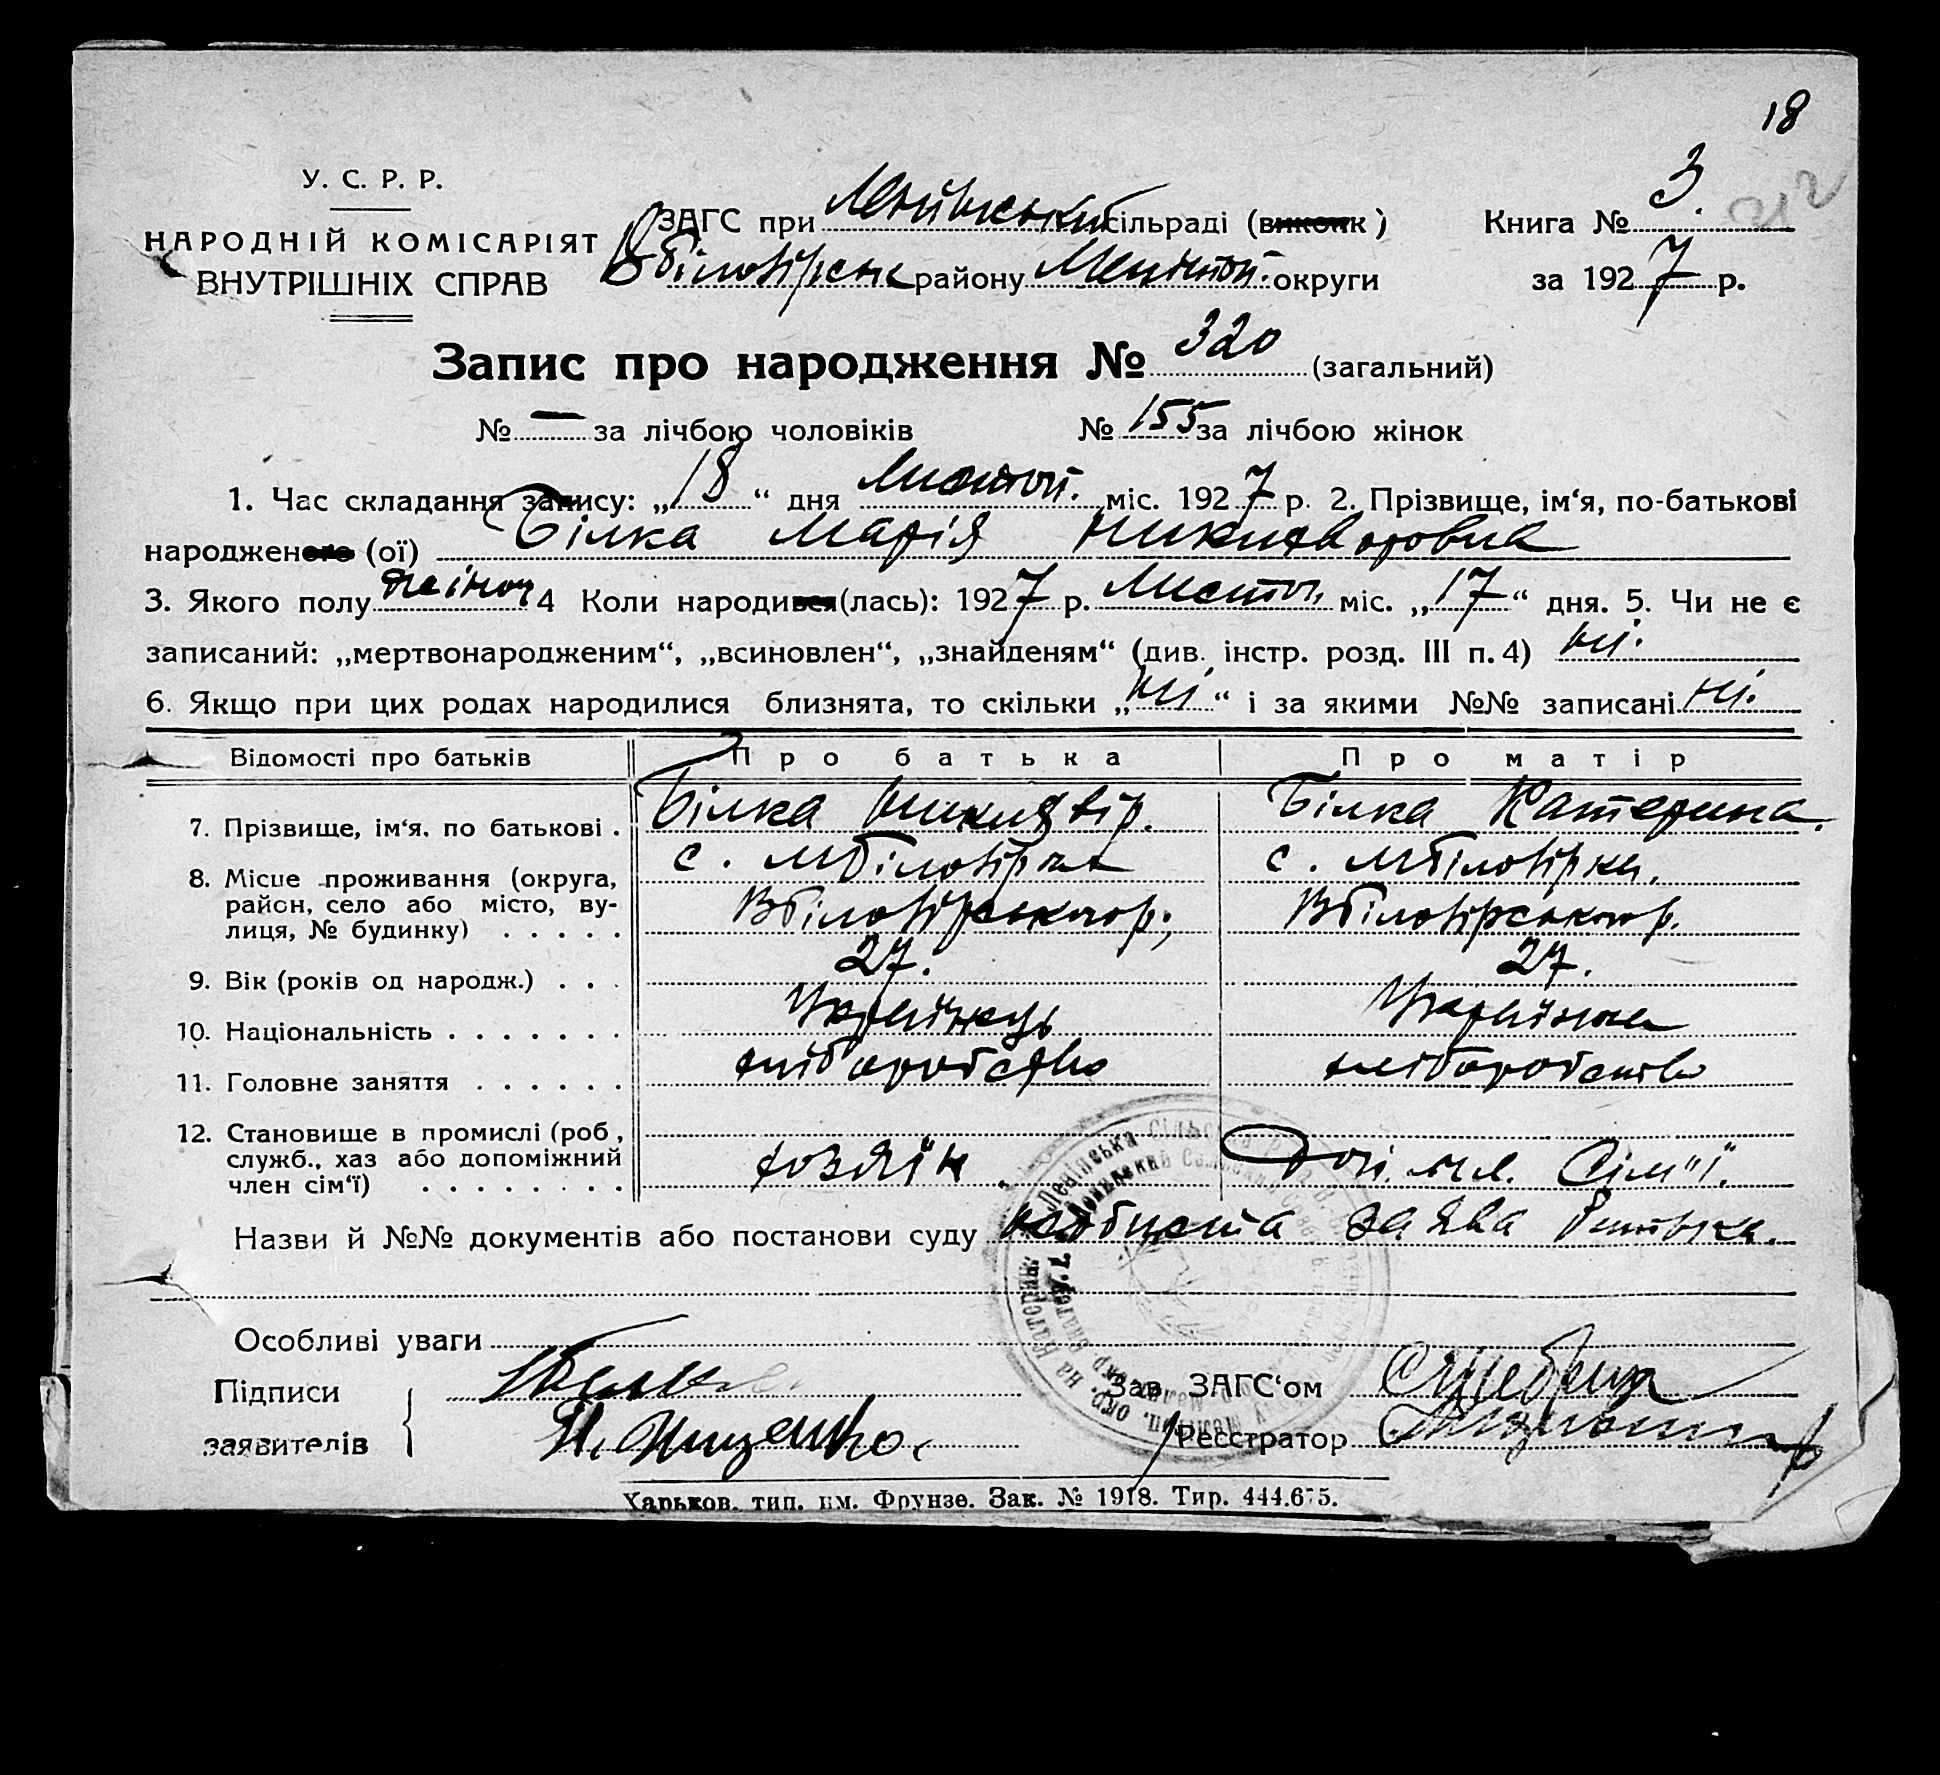 18
У. С. Р. Р.
НАРОДНІЙ КОМІСАРІЯТ
ВНУТРІШНІХ СПРАВ
ЗАГС при сільраді (виконк)
Вбіловірськ району Меліттоп. округи
Книга № 3.
за 1927 р.
Запис про народження № 320 (загальний)
№ — за лічбою чоловіків № 155 за лічбою жінок
1. Час складання запису: „18“ дня Листоп. міс. 1927 р. 2. Прізвище, ім‘я, по-батькові
народженого (ої) Білка Марія Никифоровна
3. Якого полу жіноч 4 Коли народився (лась): 1927 р. Листоп. міс. „17“ дня. 5. Чи не є
записаний: „мертвонародженим“, „всиновлен“, „знайденям“ (див. інстр. розд. III п. 4) ні.
6. Якщо при цих родах народилися близнята, то скільки „ні“ і за якими №№ записані ні.
Відомості про батьків Про батька Про матір
7. Прізвище, ім‘я, по батькові . Білка Никифір. Білка Катерина.
8. Місце проживання (округа, с. МБіловірка с. МБіловірка.
район, село або місто, ву- ВБіловірського р. ВБіловірського р.
лиця, № будинку) . . . . .
9. Вік (років од народж.) . . . 27. 27.
10. Національність . . . . . . . Українець Українка
11. Головне заняття . . . . . . хліборобство хліборобство
12. Становище в промислі (роб.,
служб., хаз або допоміжний хозяїн. Доп. чл. Сім"ї.
член сім‘ї) . . . . . . . .
Назви й №№ документів або постанови суду особиста заява батька.
Особливі уваги
Підписи Зав. ЗАГС‘ом
заявителів Н. Онищенко. Реєстратор
Харьков. тип. им. Фрунзе. Зак. № 1918. Тир. 444.675.